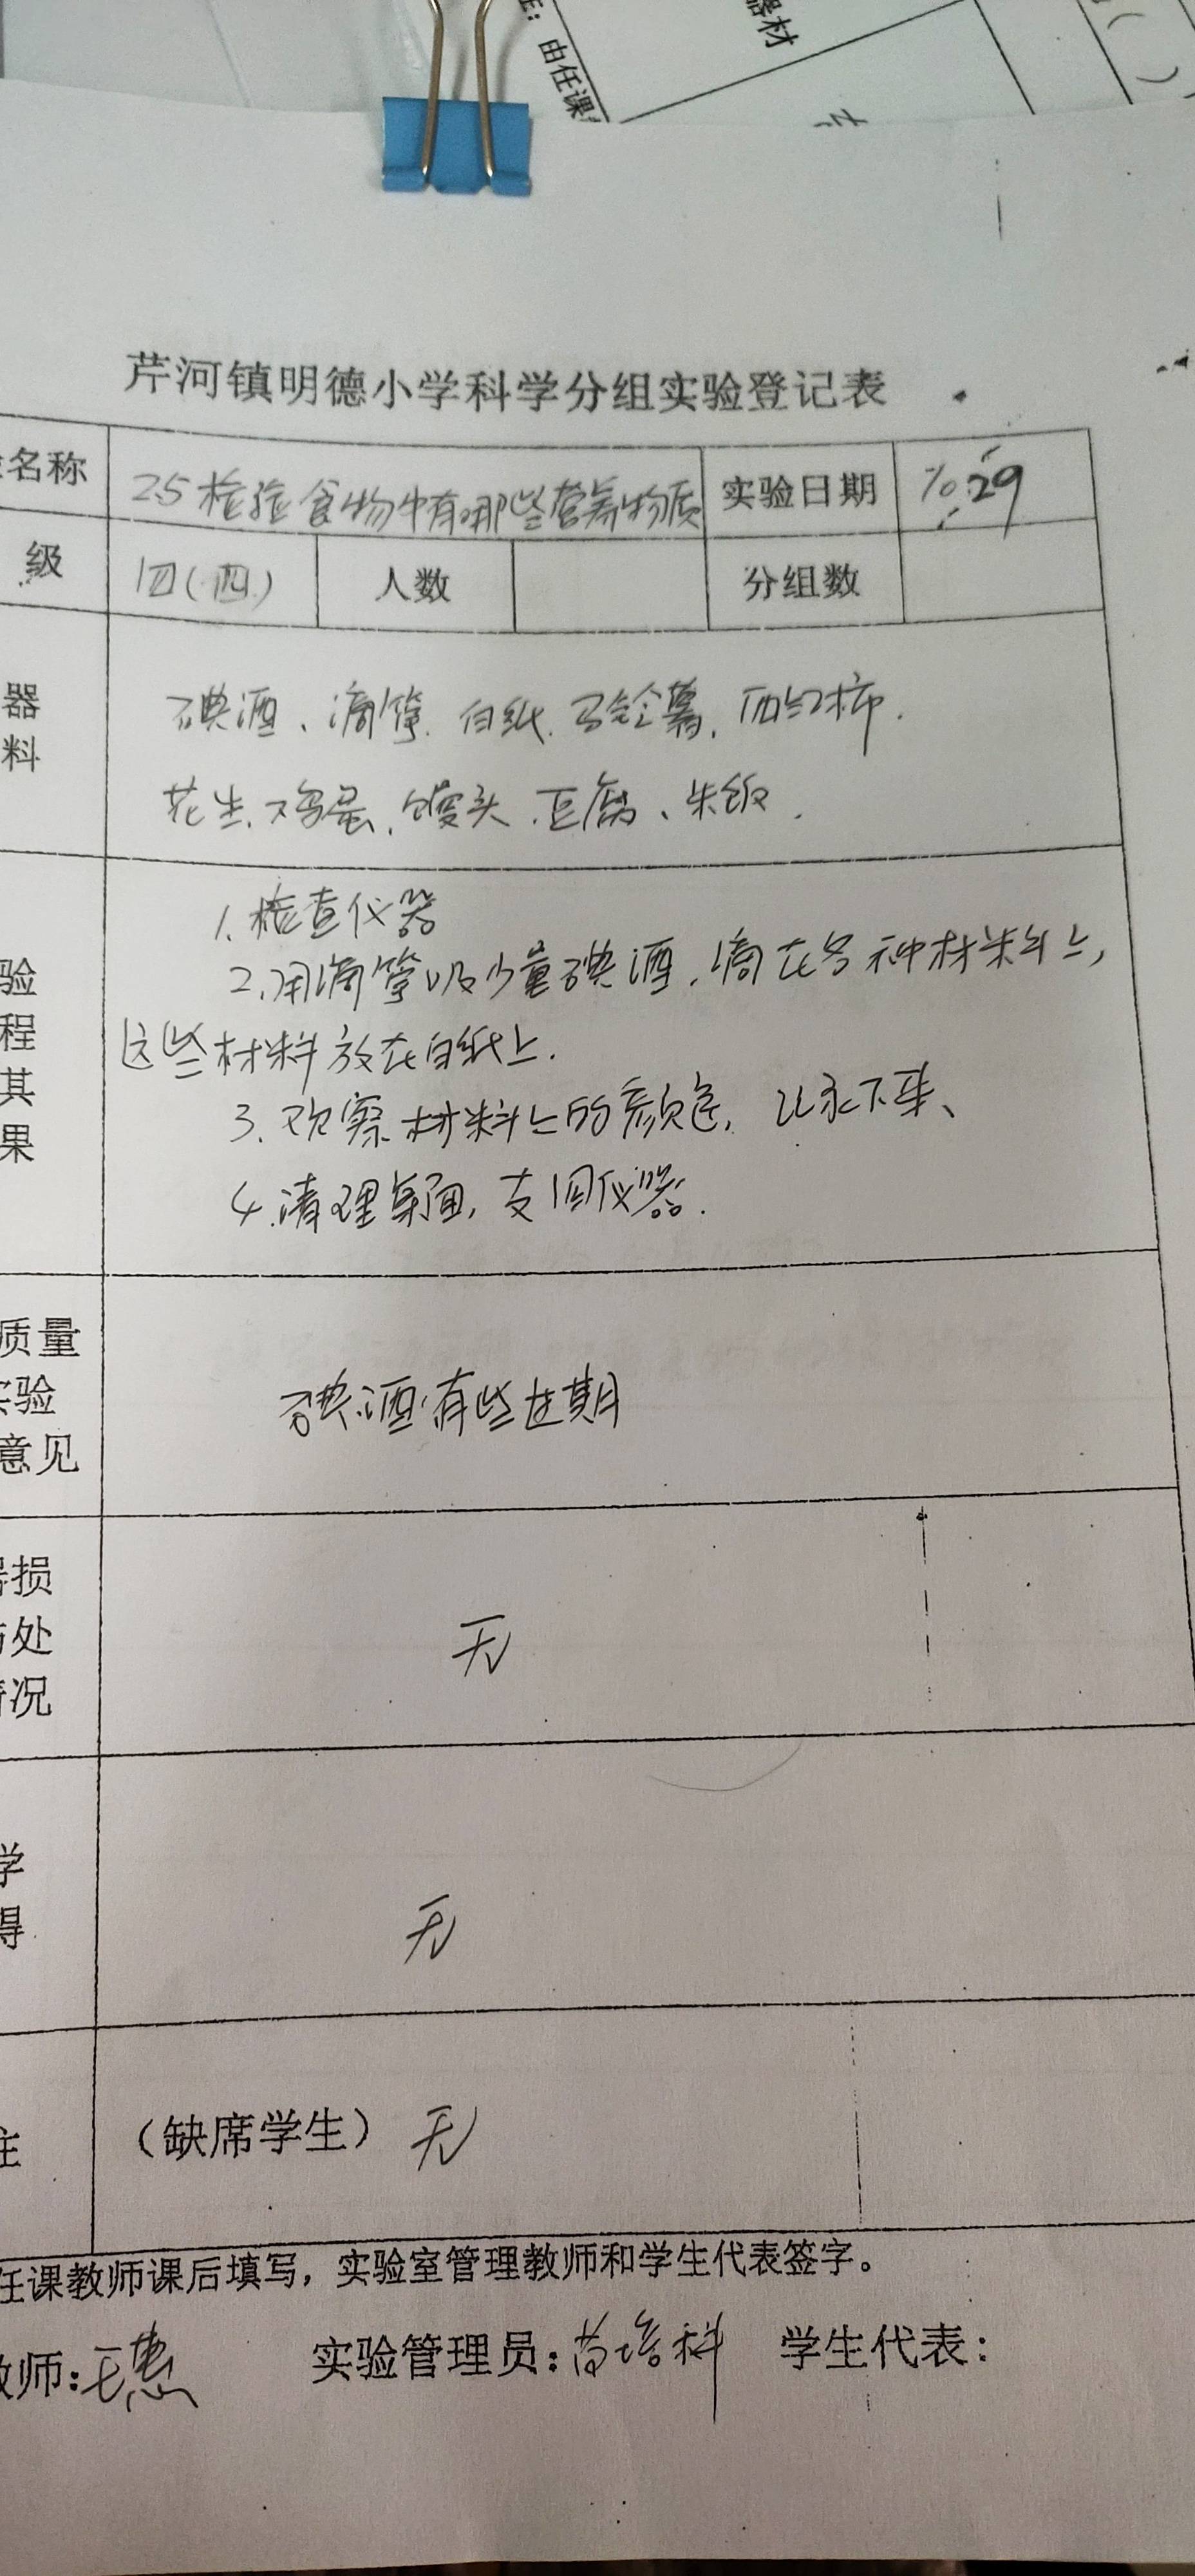 注：由任课
器材
芹河镇明德小学科学分组实验登记表
名称 25检验食物中有哪些营养物质 实验日期 29
级 四(四) 人数 分组数
器
料
碘酒、滴管.白纸.马铃薯.西红柿.
花生.鸡蛋.馒头.豆腐、米饭.
验
程
其
果
1.检查仪器
2.用滴管吸少量碘酒.滴在各种材料上,
这些材料放在白纸上.
3.观察材料上的颜色,记录下来、
4.清理桌面,交回仪器.
质量
实验
意见
碘酒有些过期
器损
与处
情况
无
学
得
无
注 (缺席学生) 无
任课教师课后填写，实验室管理教师和学生代表签字。
教师: 实验管理员: 学生代表: